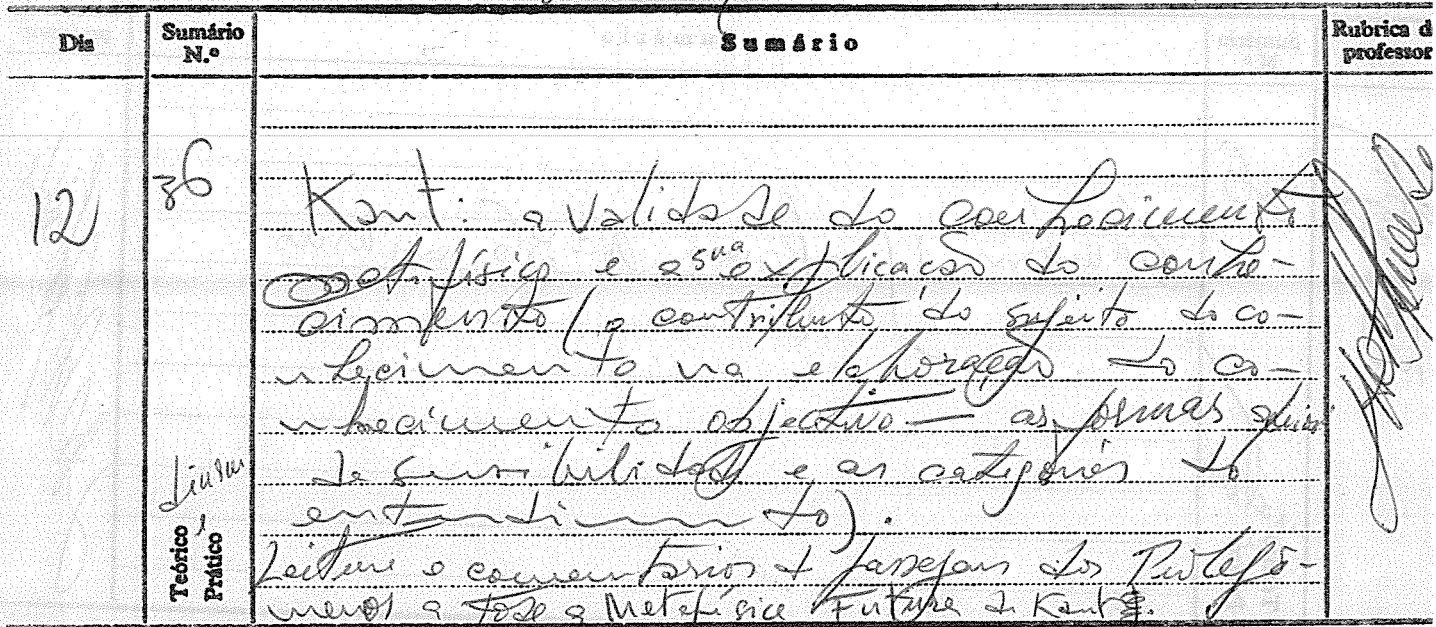 Dia
Sumário N.º
Sumário
Rubrica d
professor
12
36
Kant: a validade do conhecimento
metafísico e a sua explicação do conhe-
cimento (o contributo do sujeito do co-
nhecimento na elaboração do co-
nhecimento objectivo — as formas
da sensibilidade e as categorias do
entendimento).
Leitura e comentários de passagens dos Prolegó-
menos a toda a Metafísica Futura de Kant.
Teórico e
Prático